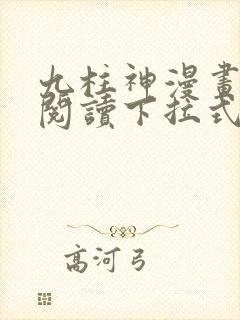 九柱神漫畫
閱讀下拉式
高河弓